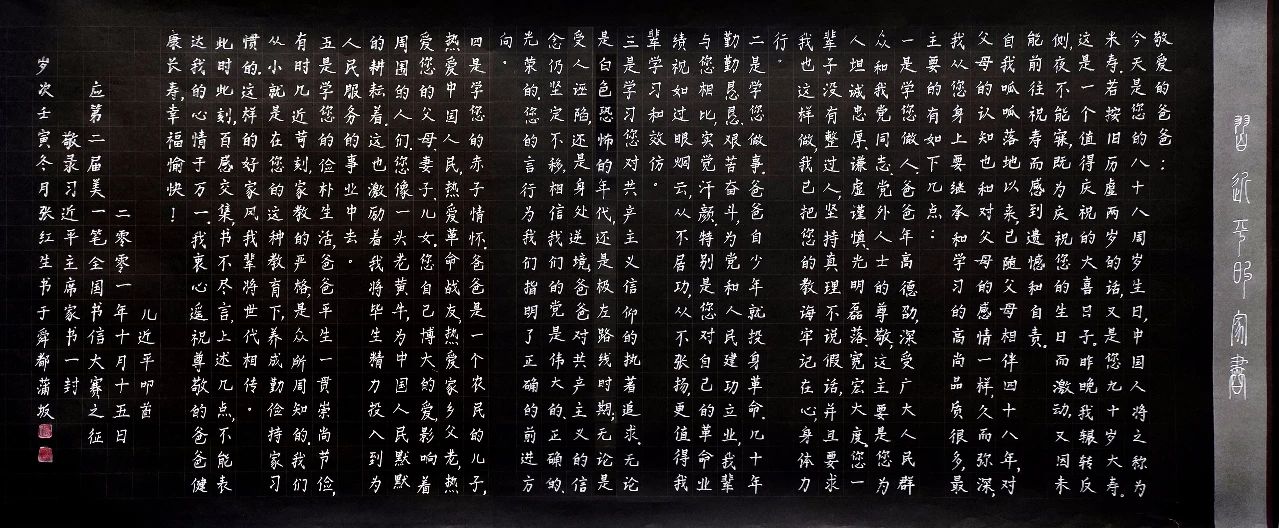 習近平的家書
敬爱的爸爸：
今天是您的八十八周岁生日，中国人将之称为
米寿。若按旧历虚两岁的话，又是您九十岁大寿。
这是一个值得庆祝的大喜日子。昨晚我辗转反
侧，夜不能寐，既为庆祝您的生日而激动，又因未
能前往祝寿而感到遗憾和自责。
自我呱呱落地以来，已随父母相伴四十八年，对
父母的认知也和对父母的感情一样，久而弥深，
我从您身上要继承和学习的高尚品质很多，最
主要的有如下几点：
一是学您做人。爸爸年高德劭，深受广大人民群
众和我党同志、党外人士的尊敬，这主要是您为
人坦诚忠厚、谦虚谨慎、光明磊落、宽宏大度。您一
辈子没有整过人，坚持真理不说假话，并且要求
我也这样做，我已把您的教诲牢记在心，身体力
行。
二是学您做事。爸爸自少年就投身革命，几十年
勤勤恳恳，艰苦奋斗，为党和人民建功立业，我辈
与您相比，实觉汗颜。特别是您对自己的革命业
绩视如过眼烟云，从不居功，从不张扬，更值得我
辈学习和效仿。
三是学习您对共产主义信仰的执着追求。无论
是白色恐怖的年代，还是极左路线时期，无论是
受人诬陷，还是身处逆境，爸爸对共产主义的信
念仍坚定不移，相信我们的党是伟大的、正确的、
光荣的。您的言行为我们指明了正确的前进方
向。
四是学您的赤子情怀。爸爸是一个农民的儿子，
热爱中国人民，热爱革命战友，热爱家乡父老，热
爱您的父母、妻子、儿女。您自己博大的爱，影响着
周围的人们。您像一头老黄牛，为中国人民默默
的耕耘着。这也激励着我将毕生精力投入到为
人民服务的事业中去。
五是学您的俭朴生活。爸爸平生一贯崇尚节俭，
有时几近苛刻。家教的严格，是众所周知的。我们
从小就是在您的这种教育下，养成勤俭持家习
惯的。这样的好家风我辈将世代相传。
此时此刻，百感交集，书不尽言，上述几点，不能表
达我的心情于万一。我衷心遥祝尊敬的爸爸健
康长寿，幸福愉快！
儿近平叩首
二零零一年十月十五日
应第二届美一笔全国书信大赛之征
敬录习近平主席家书一封
岁次壬寅冬月张红生书于舜都蒲坂